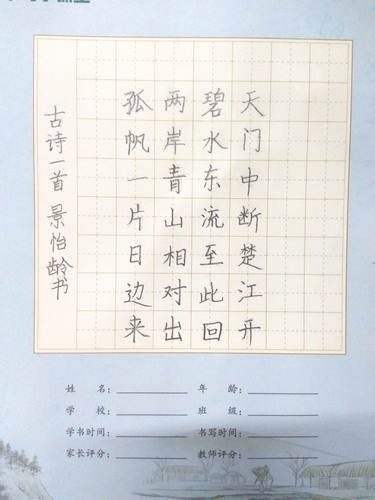 天门中断楚江开
碧水东流至此回
两岸青山相对出
孤帆一片日边来
古诗一首 景怡龄书
姓 名： 年 龄：
学 校： 班 级：
学书时间： 书写时间：
家长评分： 教师评分：